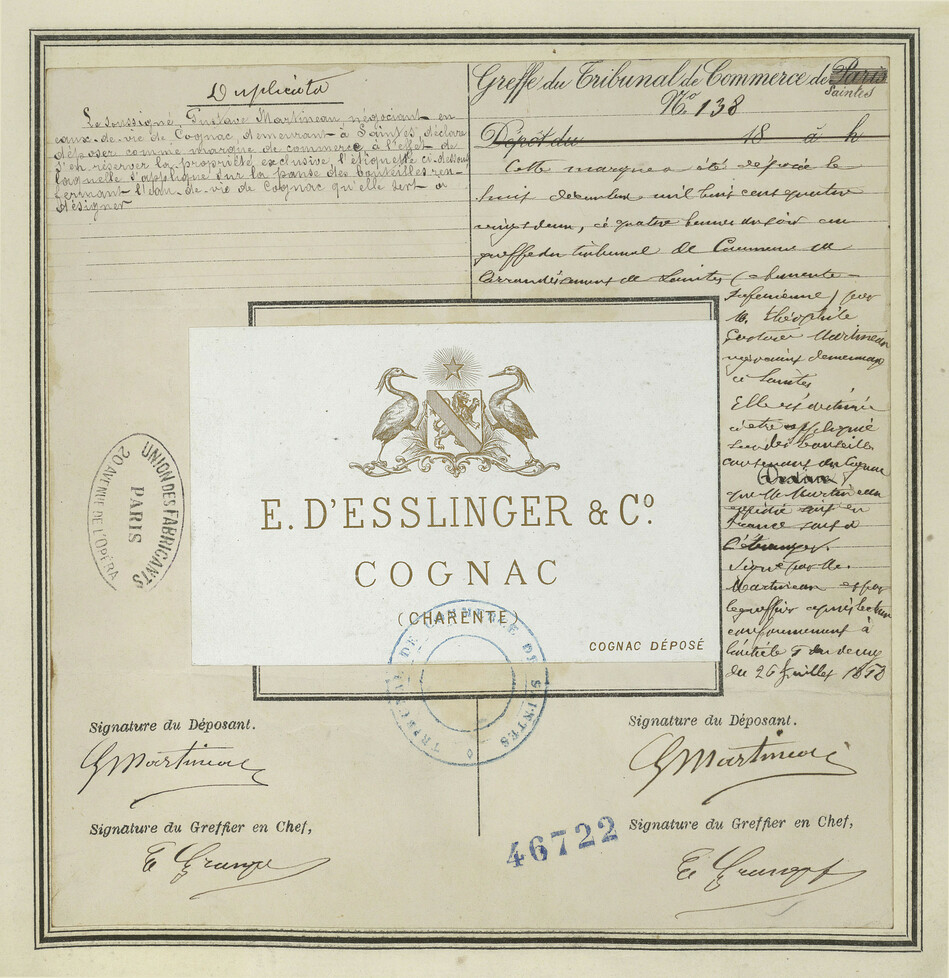 Duplicata
Le soussigné, Gustave Martineau, négociant en
eaux-de-vie de Cognac demeurant à Saintes, déclare
déposer comme marque de commerce à l'effet de
s'en réserver la propriété exclusive, l'étiquette ci-dessous
laquelle s'applique sur la panse des bouteilles ren-
fermant l'eau-de-vie de Cognac qu'elle sert à
désigner
Greffe du Tribunal de Commerce de Paris
Saintes
No 138
Dépôt du 18 à h
Cette marque a été déposée le
huit décembre mil huit cent quatre
vingt deux, à quatre heures du soir au
greffe du tribunal de Commerce de
l'arrondissement de Saintes (charente-
Inférieure) par
M. Théophile
Gustave Martineau
négociant demeurant
à Saintes
Elle est destinée
à être appliquée
sur des bouteilles
contenant du Cognac
que M. Martineau
expédie soit en
France soit à
l'étranger.
Signé par M.
Martineau et par
le greffier après lecture
conformément à
l'article du
du 26 juillet 1858
E. D'ESSLINGER & Co.
COGNAC
(CHARENTE)
COGNAC DÉPOSÉ
UNION DES FABRICANTS
PARIS
20 AVENUE DE L'OPÉRA
TRIBUNAL DE COMMERCE DE SAINTES
Signature du Déposant.
GMartineau
Signature du Greffier en Chef,
Signature du Déposant.
GMartineau
46722
Signature du Greffier en Chef,